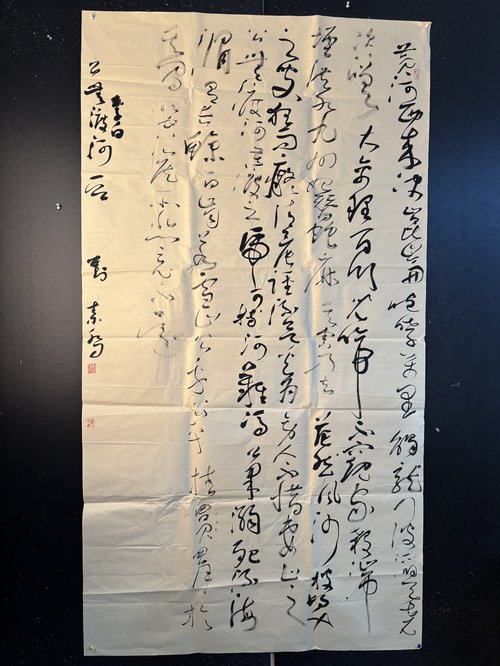 黄河西来决崑崙咆哮万里觸龍门波滔天尧
咨嗟大禹理百川儿啼不窥家殺湍
堙洪水九州始蠶麻其害乃去茫然風沙被髮
之叟狂而癡清晨径流欲奚為旁人不惜妻止之
公無渡河苦渡之虎可搏河難馮公果溺死流海
湄有長鯨白齒若雪山公乎公乎挂罥於
其间箜篌所悲竟不還
李白
公無渡河